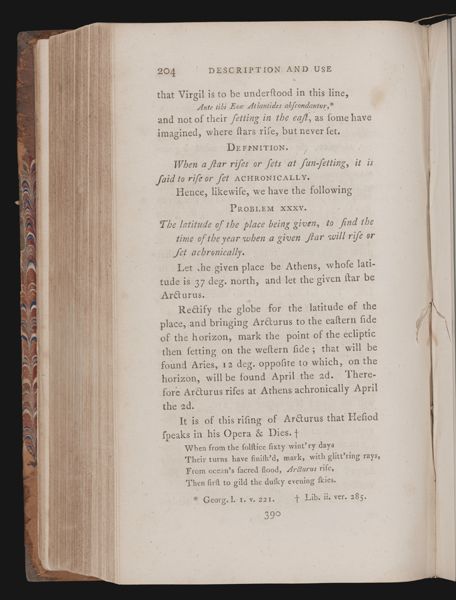 204 DESCRIPTION AND USE
that Virgil is to be underſtood in this line,
Ante tibi Eoæ Atlantides abſcondantur,*
and not of their ſetting in the eaſt, as ſome have
imagined, where ſtars riſe, but never ſet.
DEFINITION.
When a ſtar riſes or ſets at ſun-ſetting, it is
ſaid to riſe or ſet ACHRONICALLY.
Hence, likewiſe, we have the following
PROBLEM XXXV.
The latitude of the place being given, to find the
time of the year when a given ſtar will riſe or
ſet achronically.
Let the given place be Athens, whoſe lati-
tude is 37 deg. north, and let the given ſtar be
Arcturus.
Rectify the globe for the latitude of the
place, and bringing Arcturus to the eaſtern ſide
of the horizon, mark the point of the ecliptic
then ſetting on the weſtern ſide; that will be
found Aries, 12 deg. oppoſite to which, on the
horizon, will be found April the 2d. There-
fore Arcturus riſes at Athens achronically April
the 2d.
It is of this riſing of Arcturus that Heſiod
ſpeaks in his Opera & Dies. †
When from the ſolſtice ſixty wint'ry days
Their turns have finiſh'd, mark, with glitt'ring rays,
From ocean's ſacred flood, Arcturus riſe,
Then firſt to gild the duſky evening ſkies.
* Georg. l. 1. v. 221. † Lib. ii. ver. 285.
390